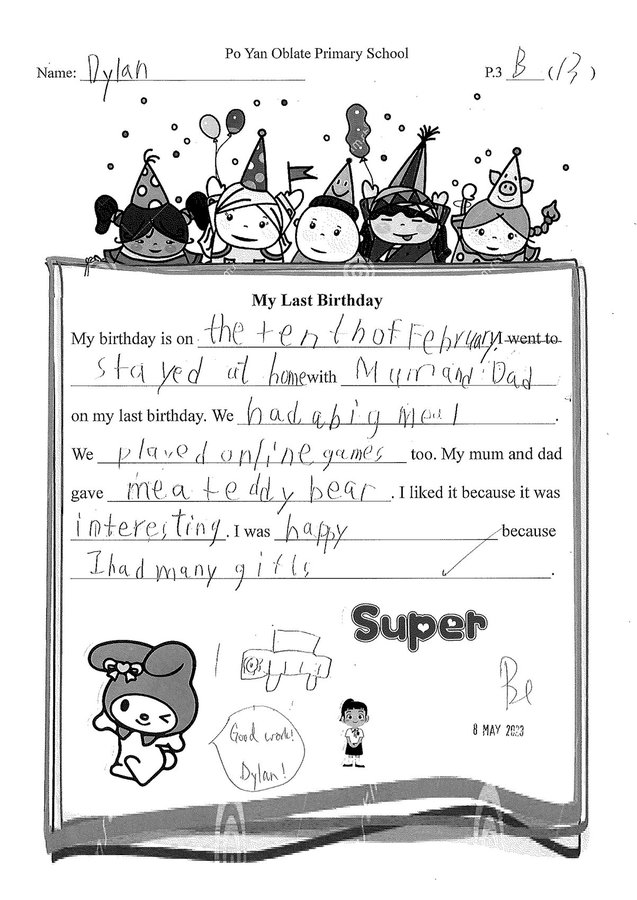 Po Yan Oblate Primary School
Name: Dylan P.3 B (13)
My Last Birthday
My birthday is on the tenth of February. I went to
stayed at home with Mum and Dad
on my last birthday. We had a big meal.
We played online games too. My mum and dad
gave me a teddy bear. I liked it because it was
interesting. I was happy because
I had many gifts.
Super
Good work!
Dylan!
Be
8 MAY 2023